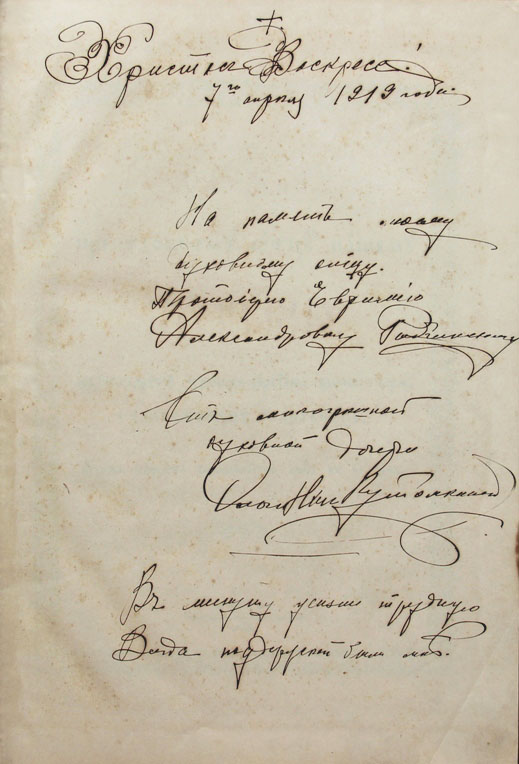 Христос Воскресе!
7го апреля 1919 года.
На память моему
духовному отцу.
Протоіерею
Александровичу
Отъ многогрешной
духовной дочери
Въ минуту жизни трудную
Всегда поддержкой были мне.